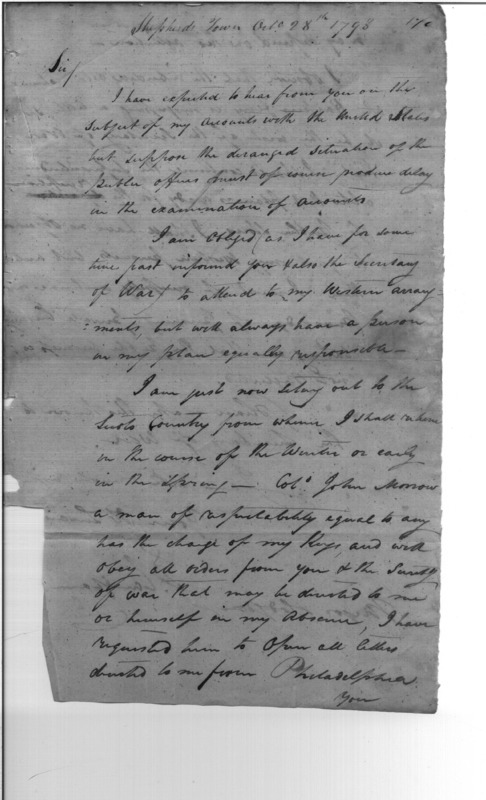 Shepherds Town Octo. 28th 1798
Sir/
I have expected to hear from you on the
Subject of my accounts with the United States
but suppose the deranged Situation of the
public offices must of course produce delay
in the examination of accounts
I am Obliged (as I have for some
time past informed you & also the Secretary
of War) to attend to my Western arrange
:ments, but will always have a person
in my place equally responsible —
I am just now seting out to the
Scoto Country from whence I shall return
in the course of the Winter or early
in the Spring — Colo. John Morrow
a man of respectability equal to any
has the charge of my Keys, and will
obey all orders from you & the Secrety
of war that may be directed to me
or himself in my Absence, I have
requested him to Open all letters
directed to me from Philadelphia.
You